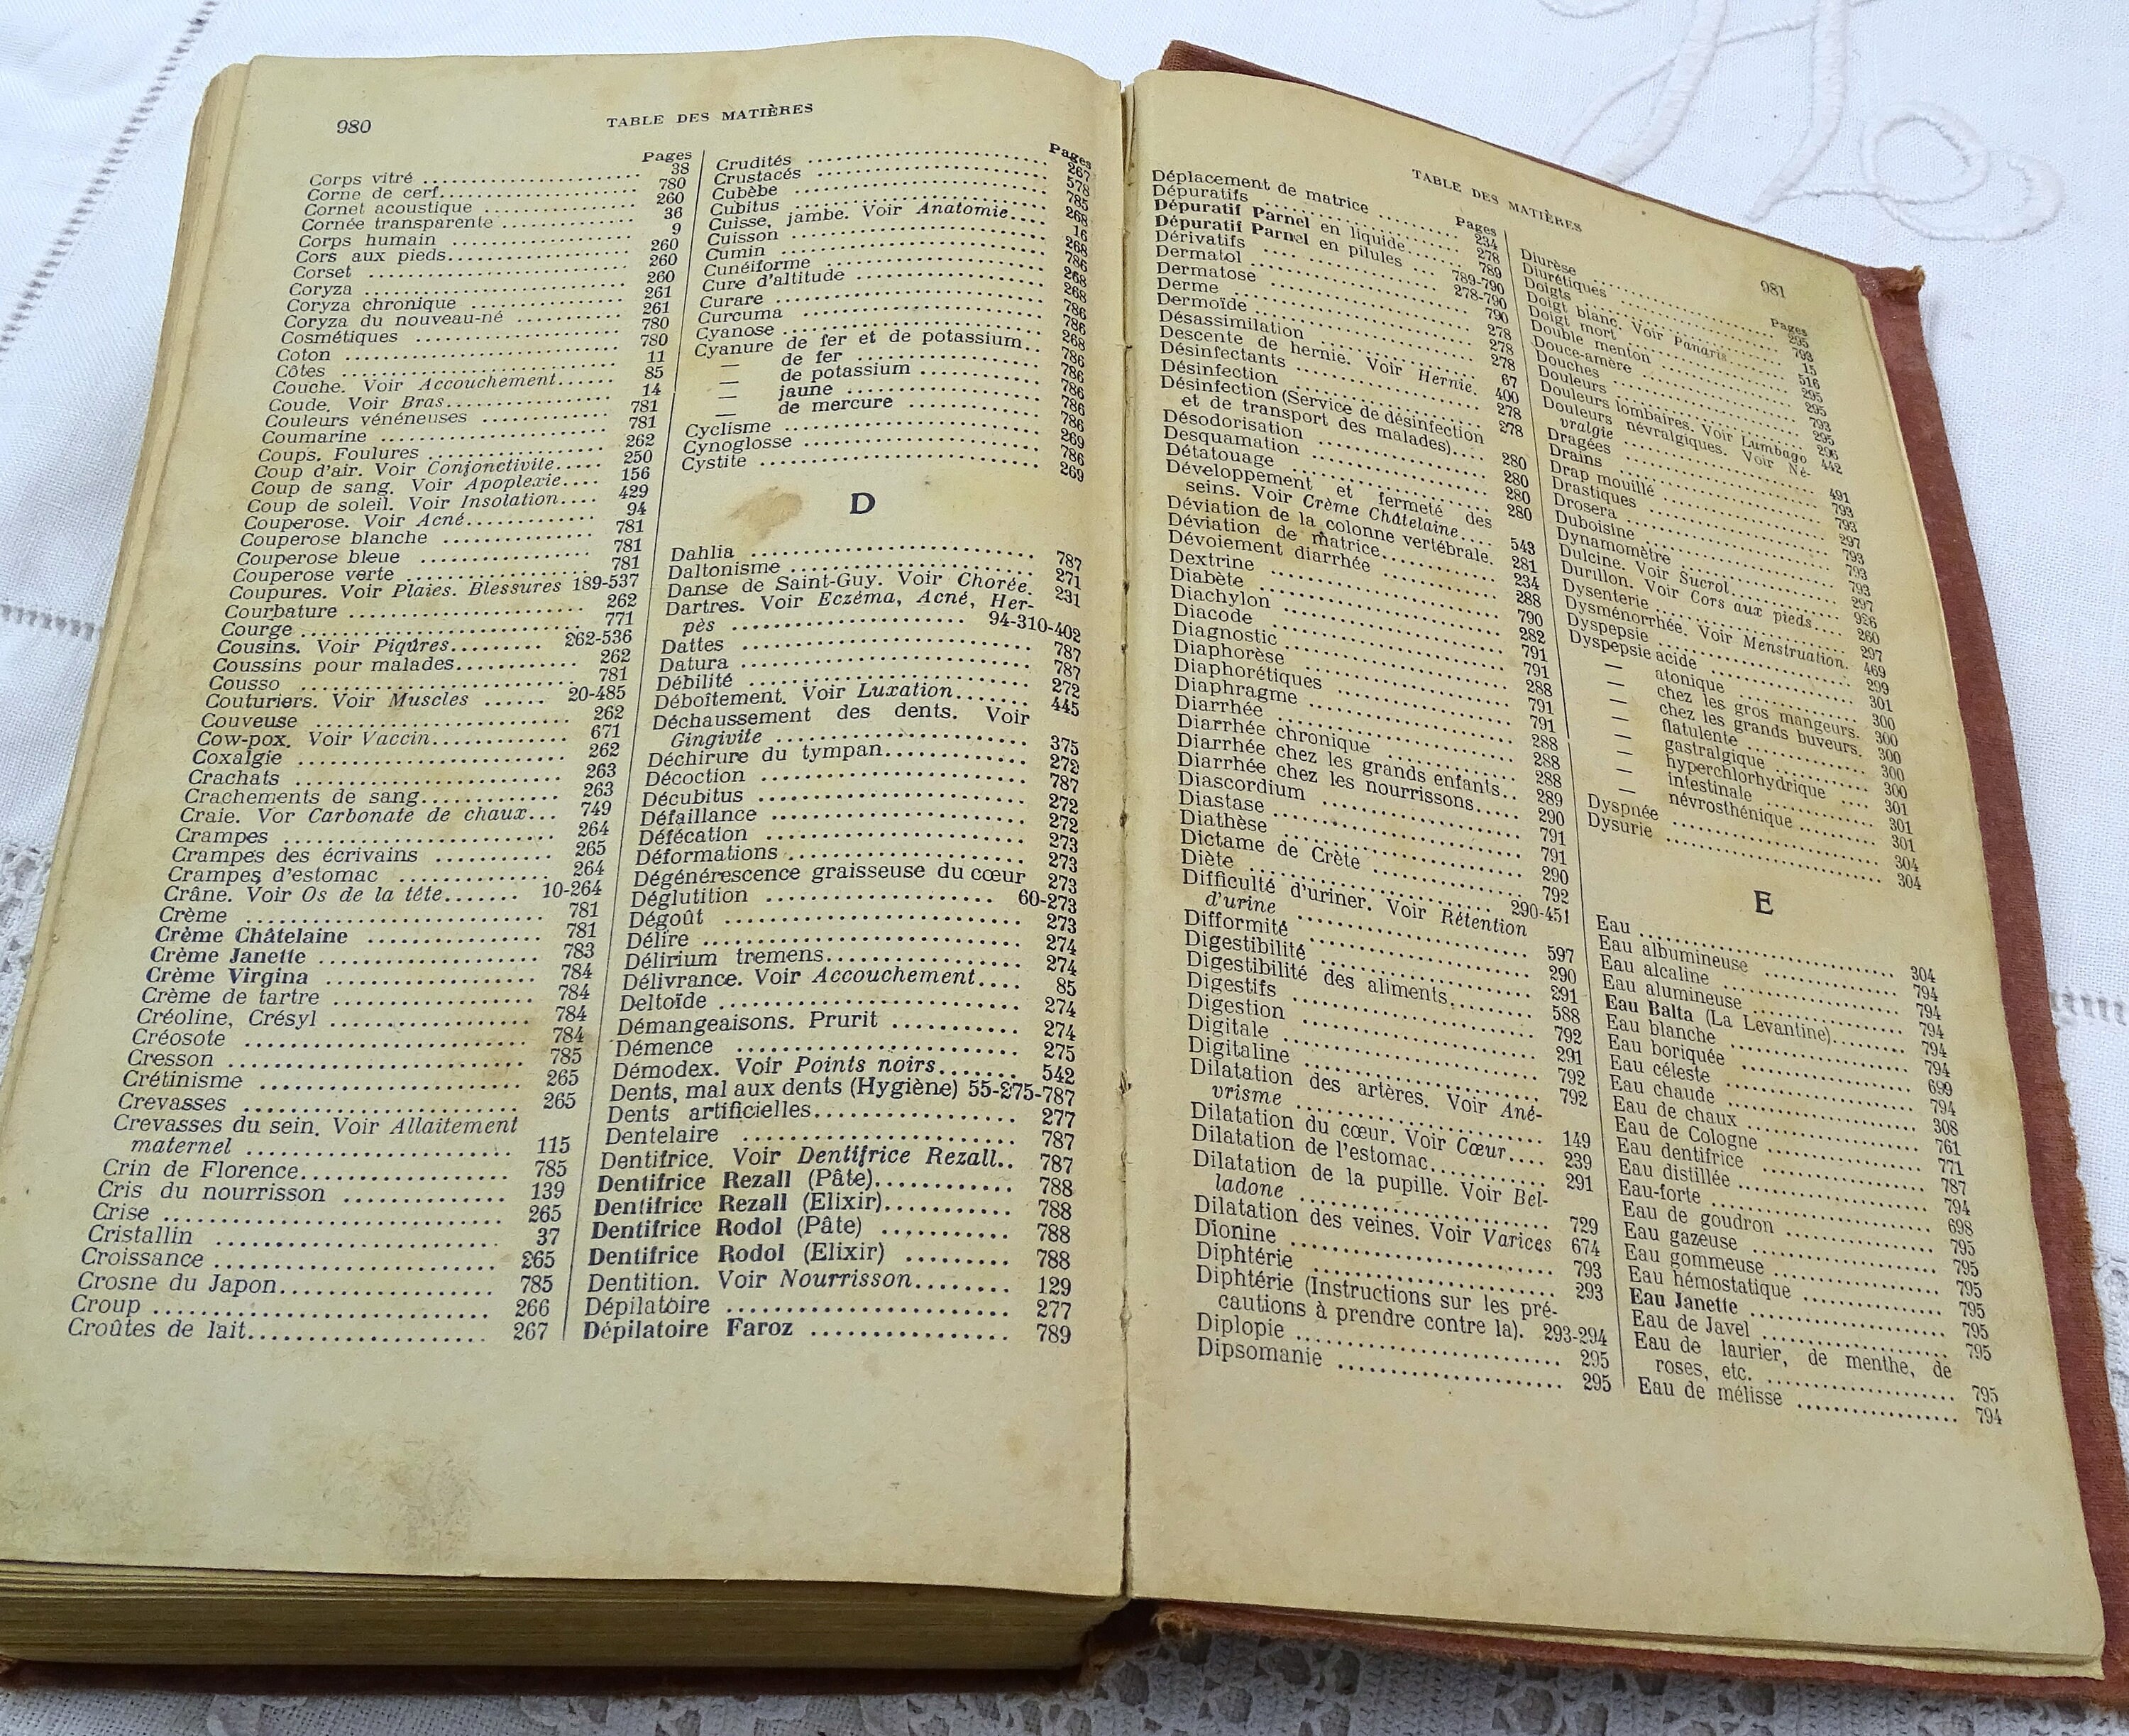 980
TABLE DES MATIÈRES
Pages
Corps vitré ........ 38
Corne de cerf ........ 780
Cornet acoustique ........ 260
Cornée transparente ........ 36
Corps humain ........ 9
Cors aux pieds ........ 260
Corset ........ 260
Coryza ........ 260
Coryza chronique ........ 261
Coryza du nouveau-né ........ 261
Cosmétiques ........ 780
Coton ........ 780
Côtes ........ 11
Couche. Voir Accouchement ...... 85
Coude. Voir Bras ........ 14
Couleurs vénéneuses ........ 781
Coumarine ........ 781
Coups. Foulures ........ 262
Coup d'air. Voir Conjonctivite ..... 250
Coup de sang. Voir Apoplexie .... 156
Coup de soleil. Voir Insolation .... 429
Couperose. Voir Acné ........ 94
Couperose blanche ........ 781
Couperose bleue ........ 781
Couperose verte ........ 781
Coupures. Voir Plaies. Blessures 189-537
Courbature ........ 262
Courge ........ 771
Cousins. Voir Piqûres ........ 262-536
Coussins pour malades ........ 262
Cousso ........ 781
Couturiers. Voir Muscles ...... 20-485
Couveuse ........ 262
Cow-pox. Voir Vaccin ........ 671
Coxalgie ........ 262
Crachats ........ 263
Crachements de sang ........ 263
Craie. Vor Carbonate de chaux ... 749
Crampes ........ 264
Crampes des écrivains ........ 265
Crampes d'estomac ........ 264
Crâne. Voir Os de la tête ....... 10-264
Crème ........ 781
Crème Châtelaine ........ 781
Crème Janette ........ 783
Crème Virgina ........ 784
Crème de tartre ........ 784
Créoline, Crésyl ........ 784
Créosote ........ 784
Cresson ........ 785
Crétinisme ........ 265
Crevasses ........ 265
Crevasses du sein. Voir Allaitement
maternel ........ 115
Crin de Florence ........ 785
Cris du nourrisson ........ 139
Crise ........ 265
Cristallin ........ 37
Croissance ........ 265
Crosne du Japon ........ 785
Croup ........ 266
Croûtes de lait ........ 267
Pages
Crudités ........ 267
Crustacés ........ 578
Cubèbe ........ 785
Cubitus ........ 268
Cuisse, jambe. Voir Anatomie .... 16
Cuisson ........ 268
Cumin ........ 786
Cunéiforme ........ 268
Cure d'altitude ........ 268
Curare ........ 786
Curcuma ........ 786
Cyanose ........ 268
Cyanure de fer et de potassium .. 786
— de fer ........ 786
— de potassium ........ 786
— jaune ........ 786
— de mercure ........ 786
Cyclisme ........ 269
Cynoglosse ........ 786
Cystite ........ 269
D
Dahlia ........ 787
Daltonisme ........ 271
Danse de Saint-Guy. Voir Chorée. 231
Dartres. Voir Eczéma, Acné, Her-
pès ........ 94-310-402
Dattes ........ 787
Datura ........ 787
Débilité ........ 272
Déboîtement. Voir Luxation ...... 445
Déchaussement des dents. Voir
Gingivite ........ 375
Déchirure du tympan ........ 272
Décoction ........ 787
Décubitus ........ 272
Défaillance ........ 272
Défécation ........ 273
Déformations ........ 273
Dégénérescence graisseuse du cœur 273
Déglutition ........ 60-273
Dégoût ........ 273
Délire ........ 274
Délirium tremens ........ 274
Délivrance. Voir Accouchement .... 85
Deltoïde ........ 274
Démangeaisons. Prurit ........ 274
Démence ........ 275
Démodex. Voir Points noirs ....... 542
Dents, mal aux dents (Hygiène) 55-275-787
Dents artificielles ........ 277
Dentelaire ........ 787
Dentifrice. Voir Dentifrice Rezall .. 787
Dentifrice Rezall (Pâte) ........ 788
Dentifrice Rezall (Elixir) ........ 788
Dentifrice Rodol (Pâte) ........ 788
Dentifrice Rodol (Elixir) ........ 788
Dentition. Voir Nourrisson ........ 129
Dépilatoire ........ 277
Dépilatoire Faroz ........ 789
TABLE DES MATIÈRES
981
Pages
Déplacement de matrice ........ 234
Dépuratifs ........ 278
Dépuratif Parnel en liquide ........ 789
Dépuratif Parnel en pilules ... 789-790
Dérivatifs .... 278-790
Dermatol ........ 790
Dermatose ........ 278
Derme ........ 278
Dermoïde ........ 278
Désassimilation ........ 67
Descente de hernie. Voir Hernie. 400
Désinfectants ........ 278
Désinfection ........ 278
Désinfection (Service de désinfection
et de transport des malades) .... 280
Désodorisation ........ 280
Desquamation ........ 280
Détatouage ........ 280
Développement et fermeté des
seins. Voir Crème Châtelaine .... 543
Déviation de la colonne vertébrale. 281
Déviation de matrice ........ 234
Dévoiement diarrhée ........ 288
Dextrine ........ 790
Diabète ........ 282
Diachylon ........ 791
Diacode ........ 791
Diagnostic ........ 288
Diaphorèse ........ 791
Diaphorétiques ........ 791
Diaphragme ........ 288
Diarrhée ........ 288
Diarrhée chronique ........ 288
Diarrhée chez les grands enfants .. 289
Diarrhée chez les nourrissons ..... 290
Diascordium ........ 791
Diastase ........ 791
Diathèse ........ 290
Dictame de Crète ........ 792
Diète ........ 290-451
Difficulté d'uriner. Voir Rétention
d'urine ........ 597
Difformité ........ 290
Digestibilité ........ 291
Digestibilité des aliments ........ 588
Digestifs ........ 792
Digestion ........ 291
Digitale ........ 792
Digitaline ........ 792
Dilatation des artères. Voir Ané-
vrisme ........ 149
Dilatation du cœur. Voir Cœur .... 239
Dilatation de l'estomac ........ 291
Dilatation de la pupille. Voir Bel-
ladone ........ 729
Dilatation des veines. Voir Varices 674
Dionine ........ 793
Diphtérie ........ 293
Diphtérie (Instructions sur les pré-
cautions à prendre contre la). 293-294
Diplopie ........ 295
Dipsomanie ........ 295
Pages
Diurèse ........ 295
Diurétiques ........ 793
Doigts ........ 15
Doigt blanc. Voir Panaris ........ 516
Doigt mort ........ 295
Double menton ........ 295
Douce-amère ........ 793
Douches ........ 295
Douleurs ........ 296
Douleurs lombaires. Voir Lumbago 442
Douleurs névralgiques. Voir Né-
vralgie ........ 491
Dragées ........ 793
Drains ........ 793
Drap mouillé ........ 297
Drastiques ........ 793
Drosera ........ 793
Duboisine ........ 793
Dynamomètre ........ 297
Dulcine. Voir Sucrol ........ 926
Durillon. Voir Cors aux pieds .... 260
Dysenterie ........ 297
Dysménorrhée. Voir Menstruation. 469
Dyspepsie ........ 299
Dyspepsie acide ........ 301
— atonique ........ 300
— chez les gros mangeurs. 300
— chez les grands buveurs. 300
— flatulente ........ 300
— gastralgique ........ 300
— hyperchlorhydrique .... 301
— intestinale ........ 301
— névrosthénique ........ 301
Dyspnée ........ 304
Dysurie ........ 304
E
Eau ........ 304
Eau albumineuse ........ 794
Eau alcaline ........ 794
Eau alumineuse ........ 794
Eau Balta (La Levantine) ........ 794
Eau blanche ........ 794
Eau boriquée ........ 699
Eau céleste ........ 794
Eau chaude ........ 308
Eau de chaux ........ 761
Eau de Cologne ........ 771
Eau dentifrice ........ 787
Eau distillée ........ 794
Eau-forte ........ 698
Eau de goudron ........ 795
Eau gazeuse ........ 795
Eau gommeuse ........ 795
Eau hémostatique ........ 795
Eau Janette ........ 795
Eau de Javel ........ 795
Eau de laurier, de menthe, de
roses, etc. ........ 795
Eau de mélisse ........ 794